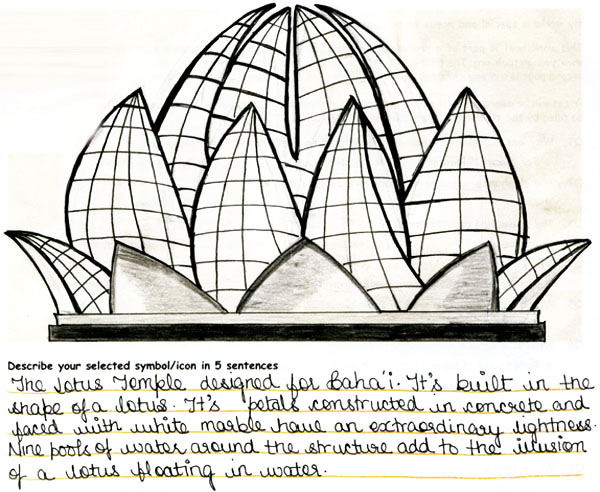 Describe your selected symbol/icon in 5 sentences
The lotus Temple designed for Baha'i. It's built in the
shape of a lotus. It's petals constructed in concrete and
faced with white marble have an extraordinary lightness.
Nine pools of water around the structure add to the illusion
of a lotus floating in water.